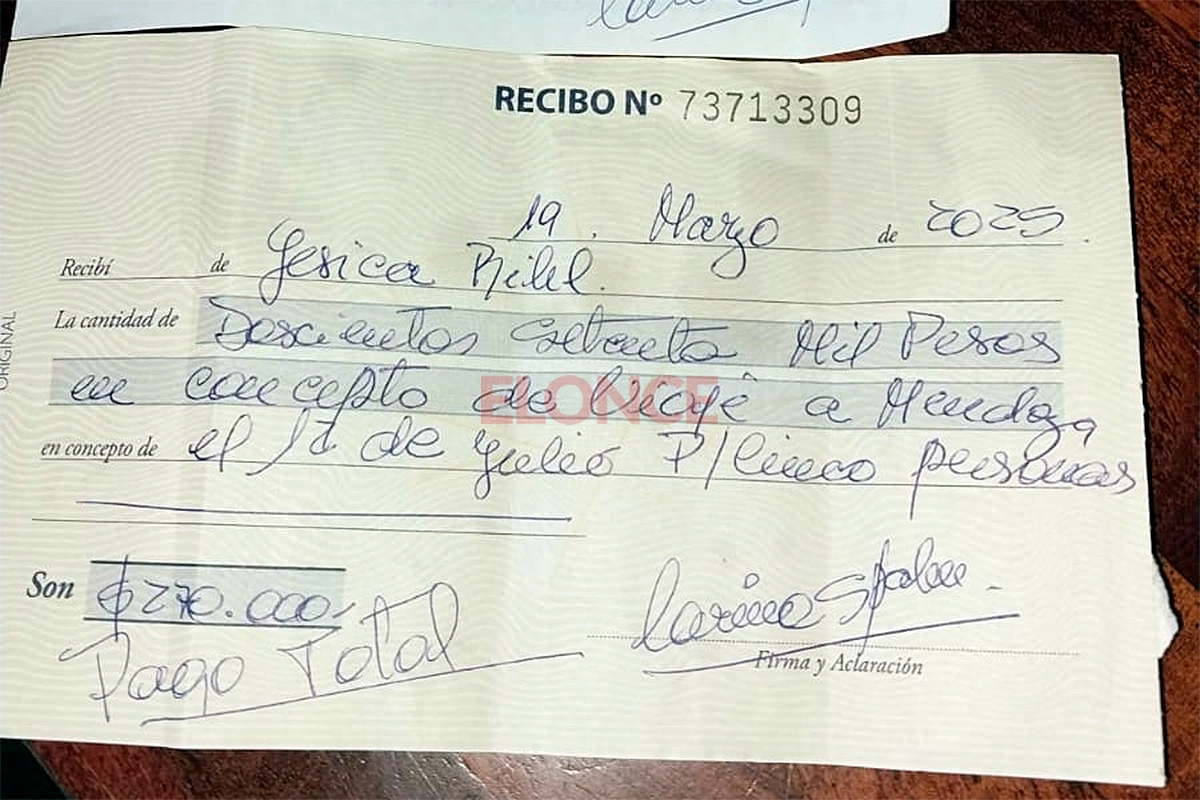 RECIBO Nº 73713309
19. Marzo de 2025.
Recibí de Yesica
La cantidad de Doscientos Setenta Mil Pesos
en concepto de Viaje a Mendoza
ELONCE
en concepto de el 1º de Julio P/ Cinco personas
Son $270.000.-
Pago Total
Firma y Aclaración
ORIGINAL